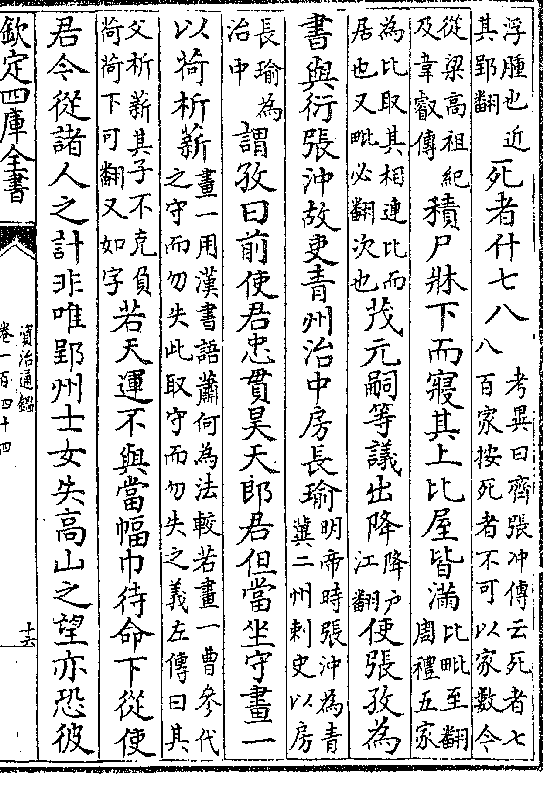 浮腫也近其郢翻死者什七八考異曰齊張冲傳云死者七八百家按死者不可以家數今
從梁高祖紀及韋叡傳積尸牀下而寢其上比屋皆滿比毗至翻周禮五家
為比取其相連比而居也又毗必翻次也茂元嗣等議出降降户江翻使張孜為
書與衍張冲故吏青州治中房長瑜明帝時張沖為青冀二州刺史以房
長瑜為治中謂孜曰前使君忠貫昊天郎君但當坐守畫一
以荷析薪畫一用漢書語蕭何為法較若畫一曹參代之守而勿失此取守而勿失之義左傳曰其
父析薪其子不克負荷荷下可翻又如字若天運不與當幅巾待命下從使
君今從諸人之計非唯郢州士女失高山之望亦恐彼
欽定四庫全書
資治通鑑
卷一百四十四
十六